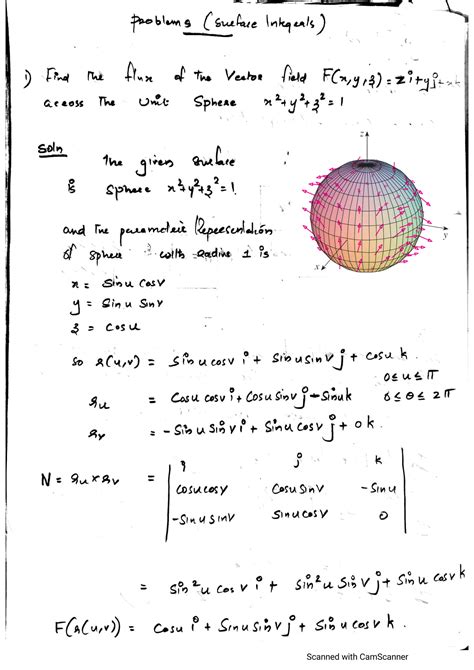 problems (Surface Integrals)
1) Find the flux of the Vector field F(x,y,z) = zi+yj+x
across the Unit Sphere x²+y²+z²=1
Soln
The given surface
is sphere x²+y²+z²=1.
and the parametric Representation
of sphere with radius 1 is
x = Sinu Cosv
y = Sinu Sinv
z = Cosu
z
y
x
so r(u,v) = Sinu cosv i + Sinu sinv j + Cosu k
0≤u≤π
r_u = Cosu cosv i + Cosu Sinv j - Sinu k 0≤θ≤2π
r_v = -Sinu Sinv i + Sinu Cosv j + 0k.
N = r_u × r_v = | i j k
Cosu Cosv Cosu Sinv -Sinu
-Sinu Sinv Sinu Cosv 0 |
= Sin²u Cosv i + Sin²u Sinv j + Sinu Cosv k
F(r(u,v)) = Cosu i + Sinu Sinv j + Sinu Cosv k.
Scanned with CamScanner